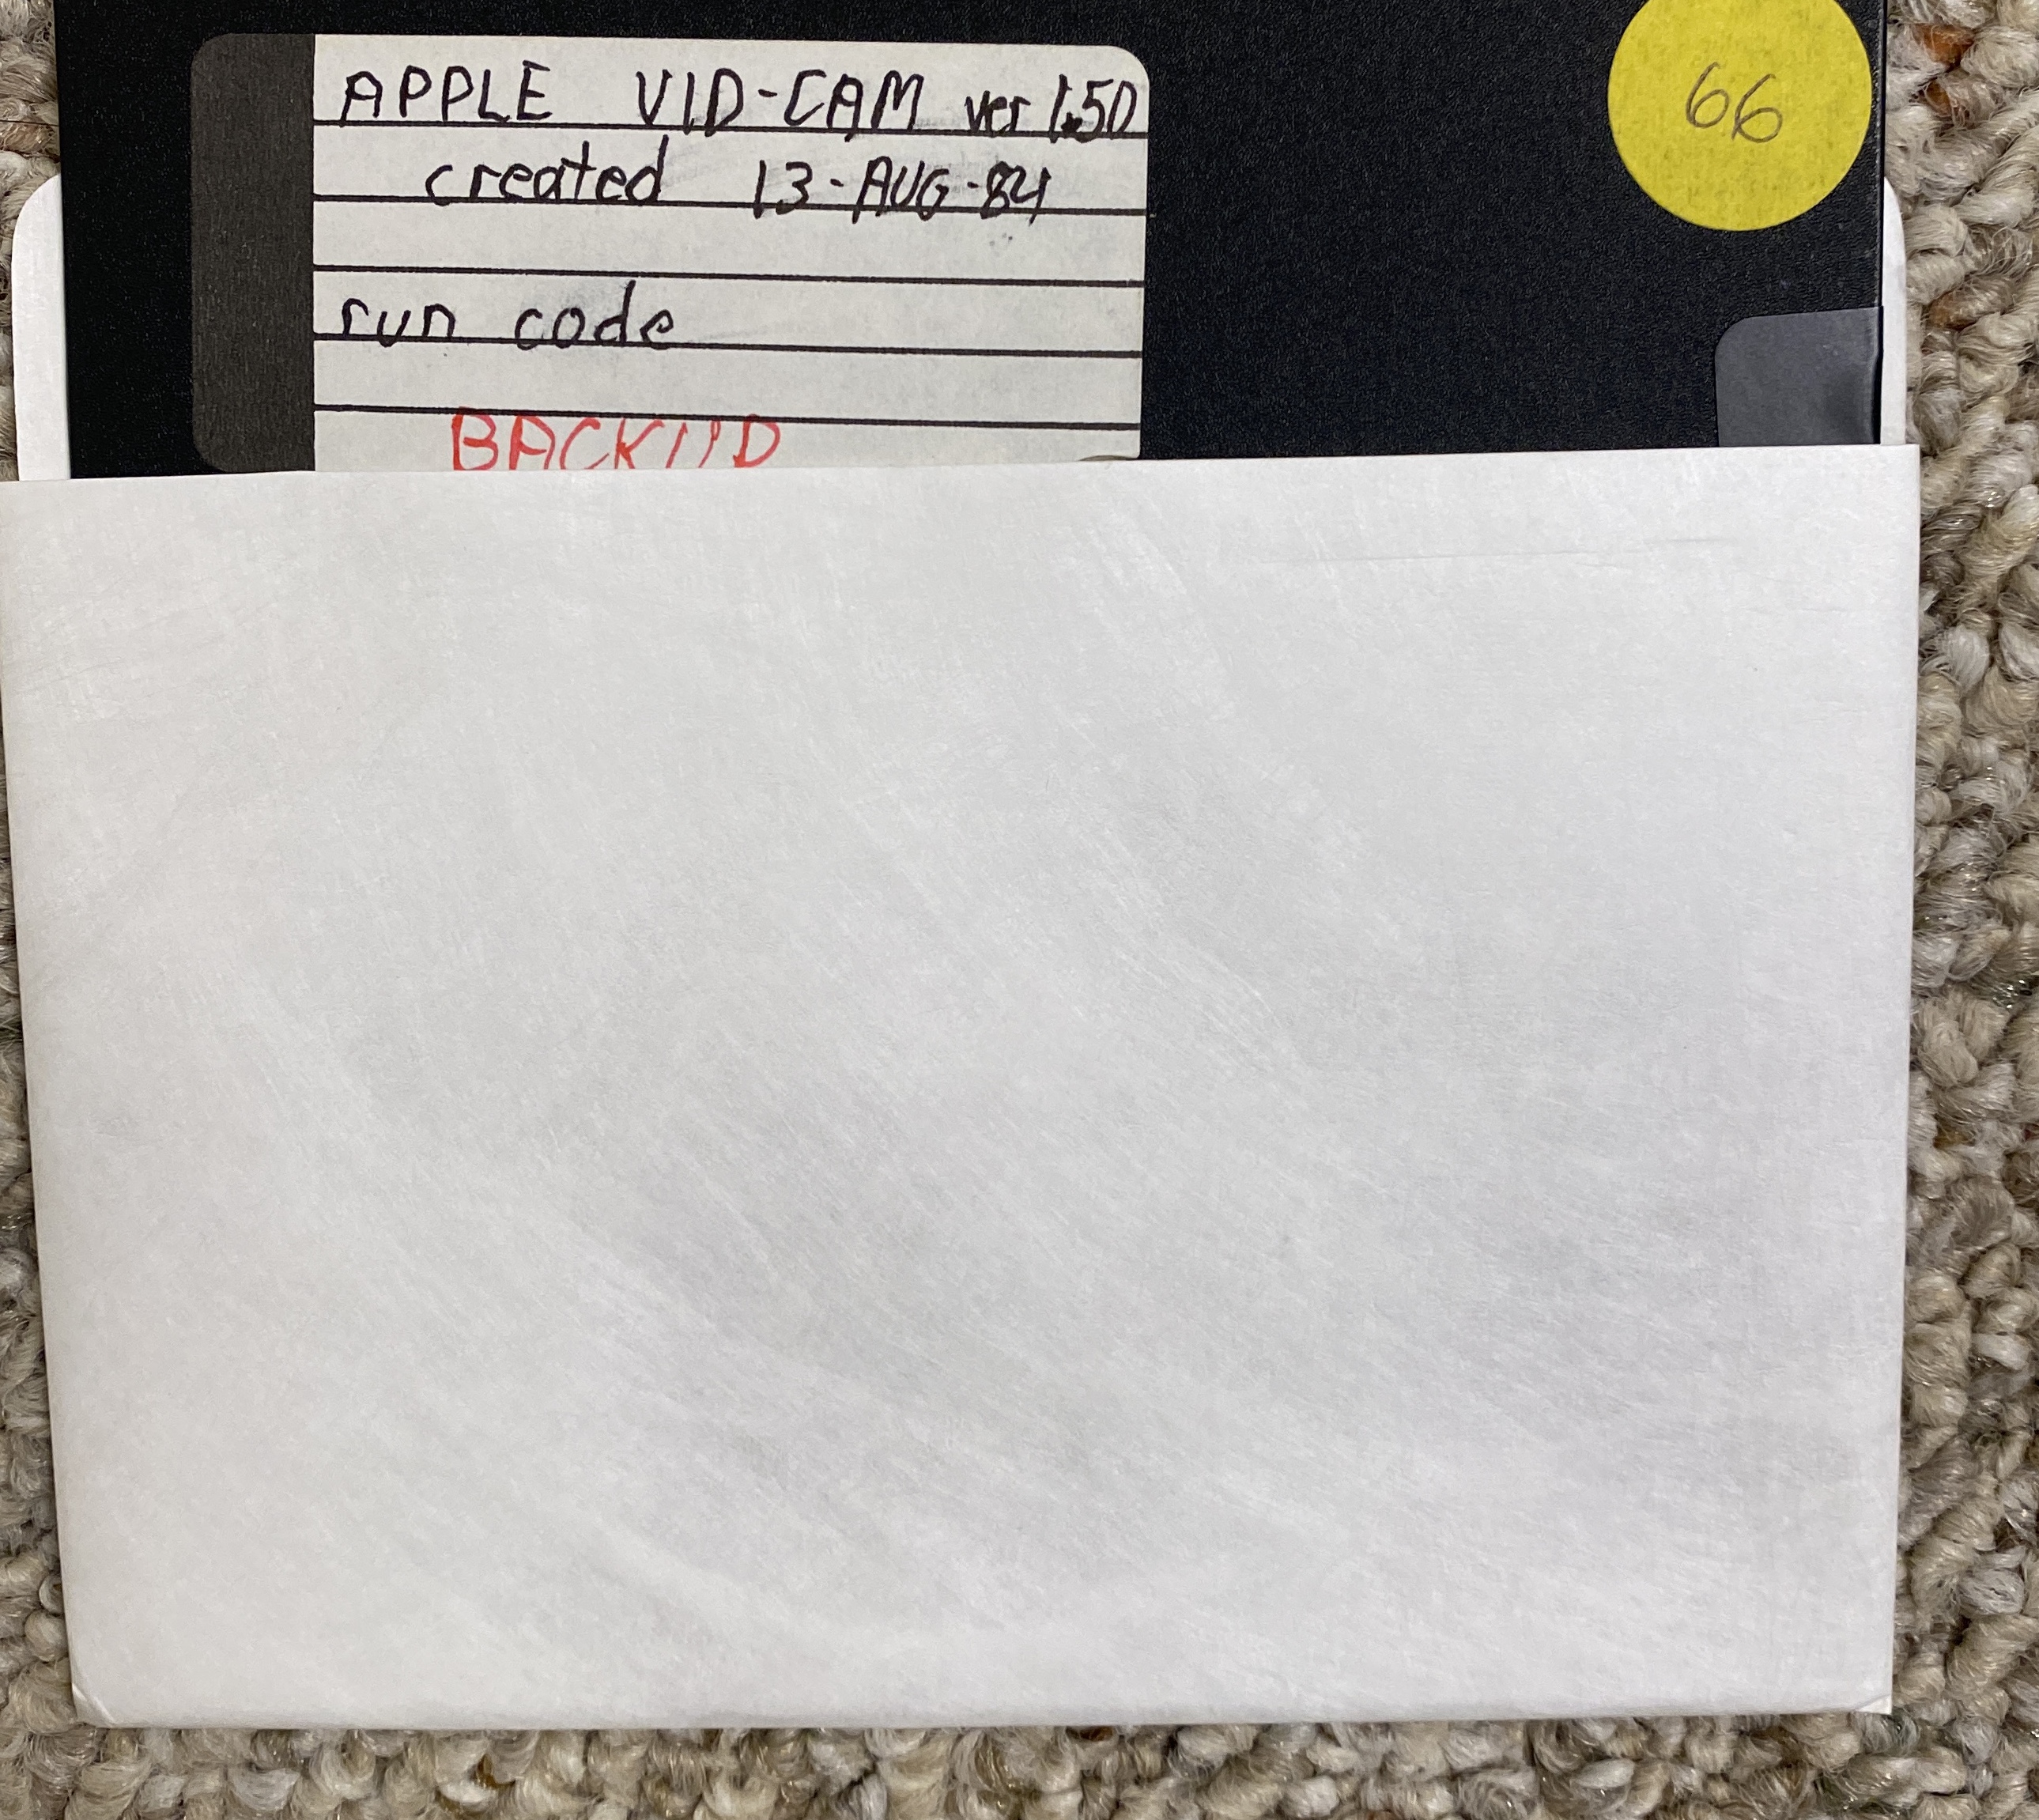 APPLE VID-CAM ver 1.50
66
created 13-AUG-84
run code
BACKUP